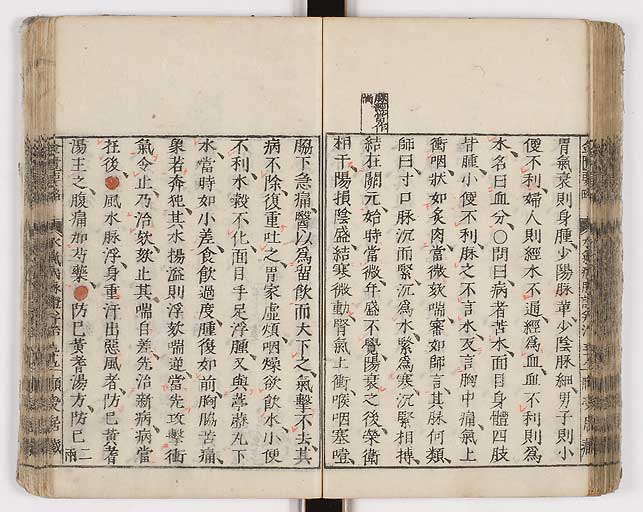 胃氣衰則身腫少陽脉革少陰脉細男子則小
便不利婦人則經水不通經爲血血不利則爲
水名曰血分○問曰病者苦水面目身體四肢
皆腫小便不利脉之不言水反言胸中痛氣上
衝咽狀如炙肉當微欬喘審如師言其脉何類
師曰寸口脉沉而緊沉爲水緊爲寒沉緊相摶
結在關元始時當微年盛不覺陽衰之後榮衛
相干陽損陰盛結寒微動腎氣上衝喉咽塞噎
脇下急痛醫以爲留飲而大下之氣擊不去其
病不除復重吐之胃家虛煩咽燥欲飲水小便
不利水穀不化面目手足浮腫又與葶藶丸下
水當時如小差食飲過度腫復如前胸脇苦痛
象若奔豚其水揚溢則浮欬喘逆當先攻擊衝
氣令止乃治欬欬止其喘自差先治新病病當
在後●風水脉浮身重汗出惡風者防已黃耆
湯主之腹痛加芍藥●防已黃耆湯方防已一兩